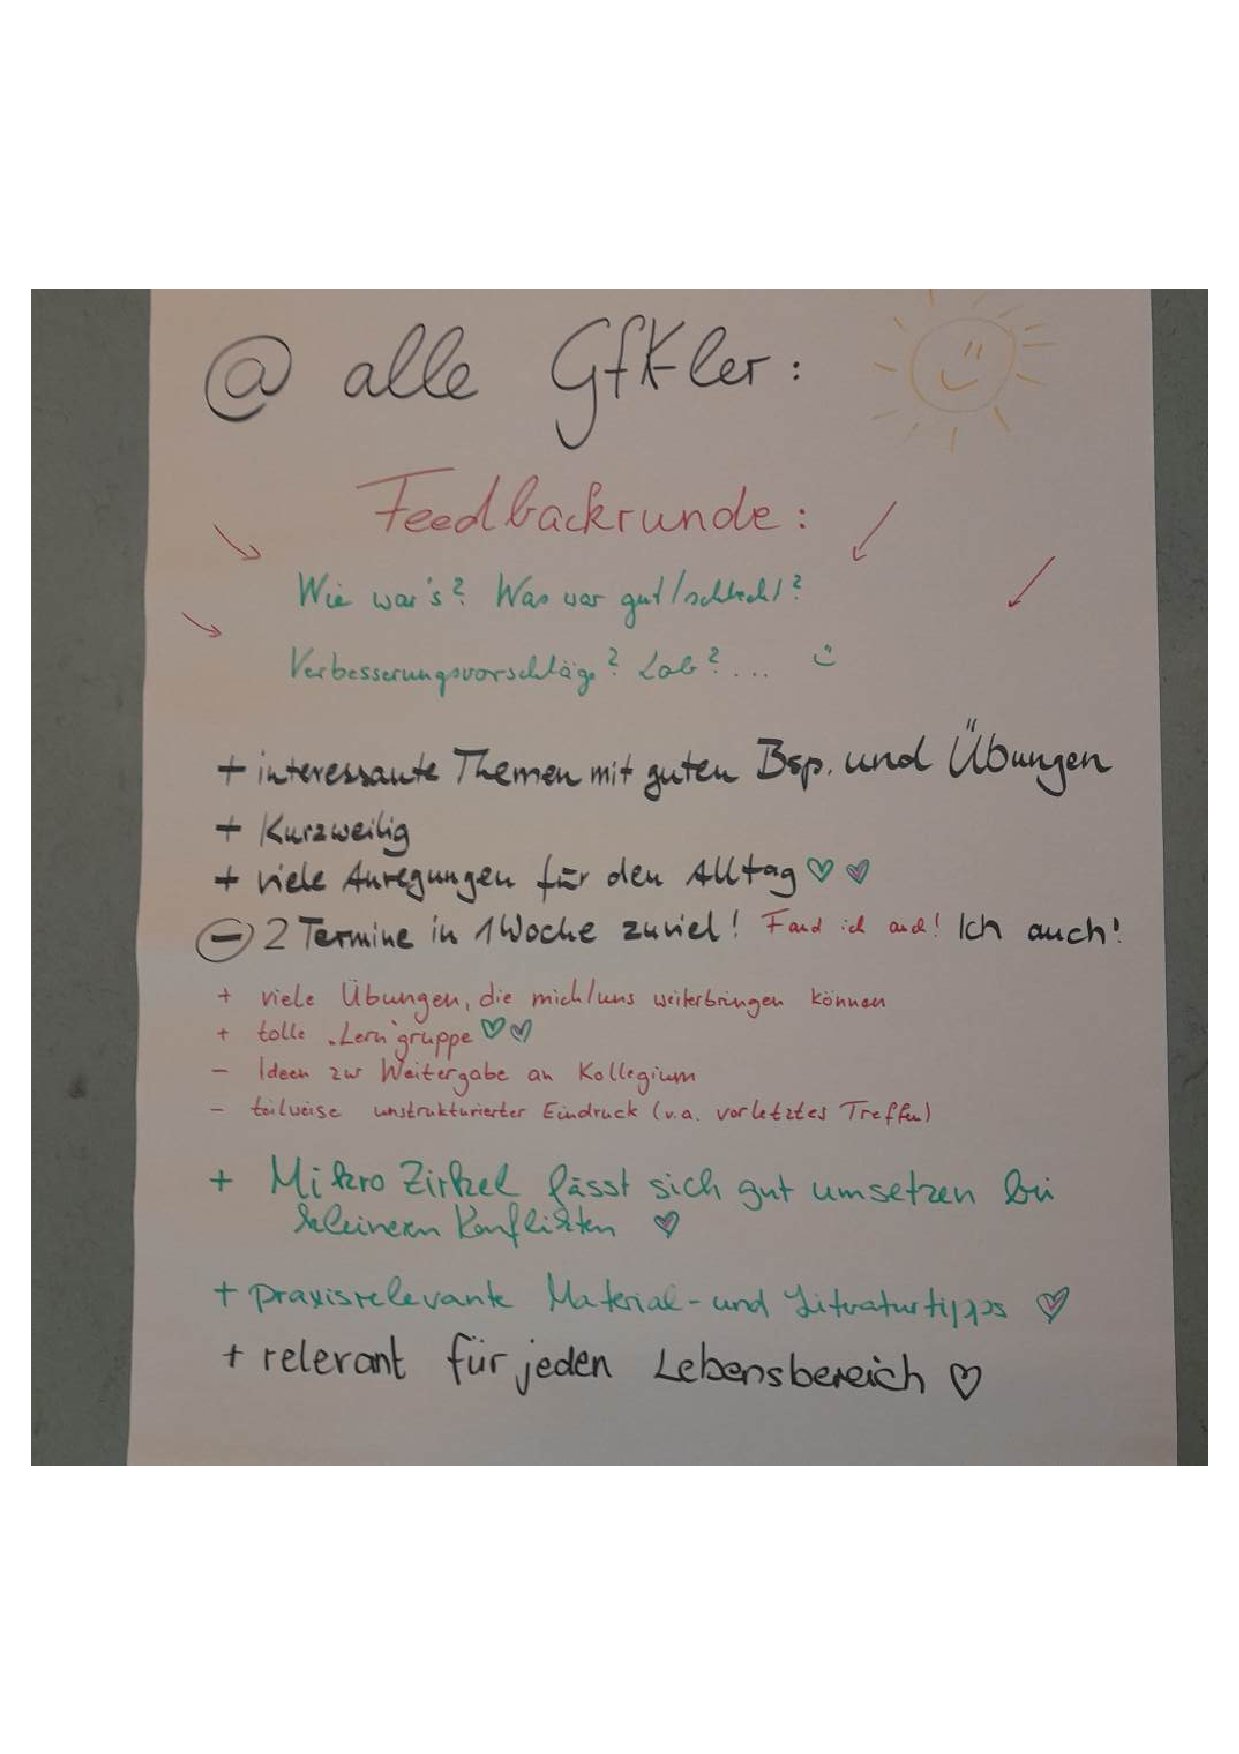 @ alle GfKler:
Feedbackrunde:
Wie war's? Was war gut/schlecht?
Verbesserungsvorschläge? Lob? ...
+ interessante Themen mit guten Bsp. und Übungen
+ Kurzweilig
+ viele Anregungen für den Alltag ♡ ♡
- 2 Termine in 1 Woche zuviel! Fand ich auch! Ich auch!
+ viele Übungen, die mich/uns weiterbringen können
+ tolle „Lern"gruppe ♡♡
- Ideen zur Weitergabe an Kollegium
- teilweise unstrukturierter Eindruck (v.a. vorletztes Treffen)
+ Mikro Zirkel lässt sich gut umsetzen bei
kleineren Konflikten ♡
+ praxisrelevante Material- und Literaturtipps ♡
+ relevant für jeden Lebensbereich ♡